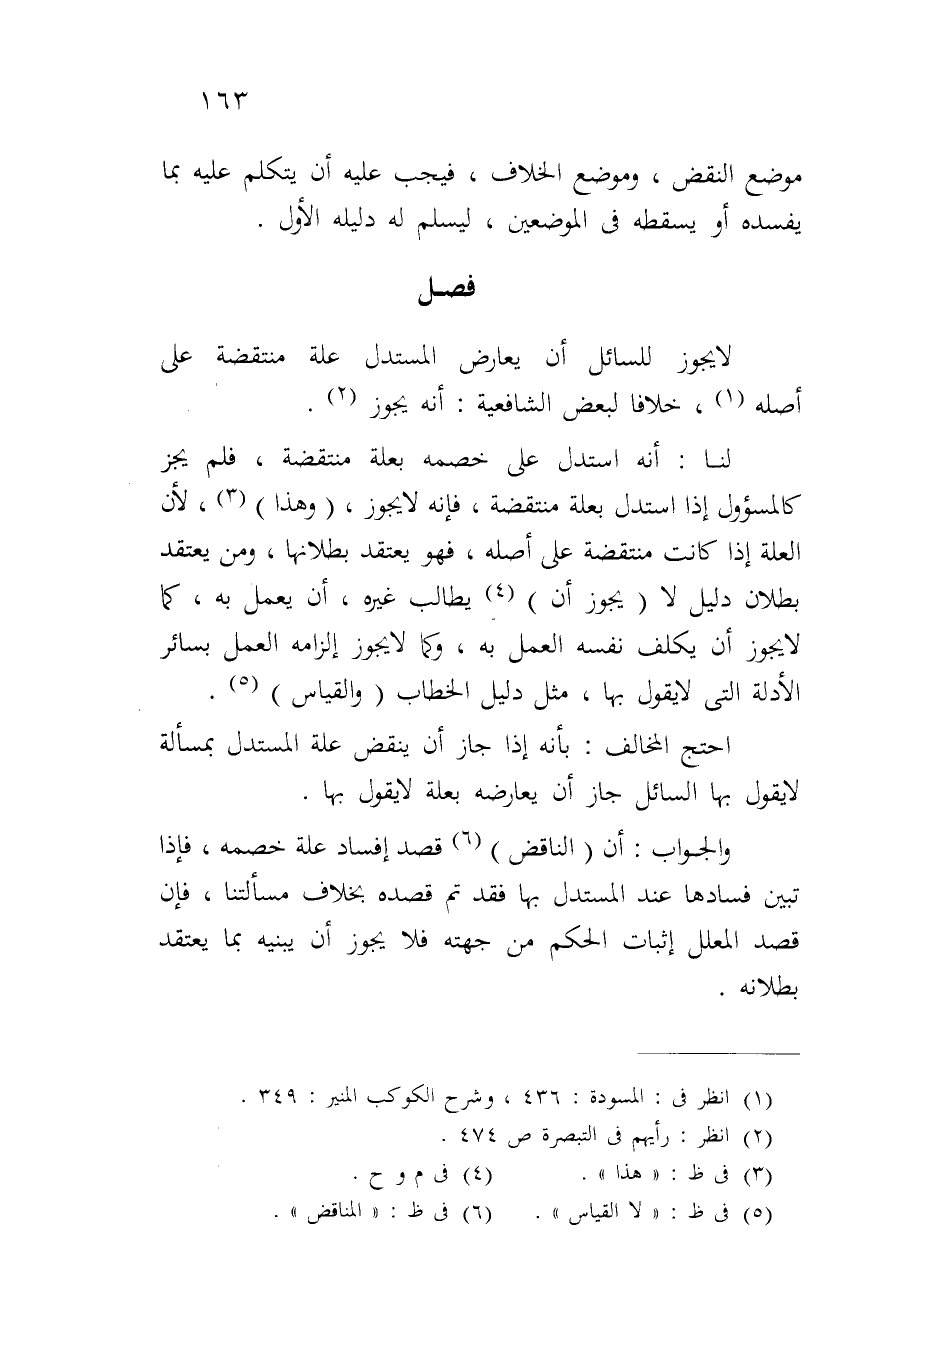 ١٦٣
موضع النقض ، وموضع الخلاف ، فيجب عليه أن يتكلم عليه بما
يفسده أو يسقطه فى الموضعين ، ليسلم له دليله الأول .
فصل
لايجوز للسائل أن يعارض المستدل علة منتقضة على
أصله (١) ، خلافا لبعض الشافعية : أنه يجوز (٢) .
لنا : أنه استدل على خصمه بعلة منتقضة ، فلم يجز
كالمسؤول إذا استدل بعلة منتقضة ، فإنه لايجوز ، ( وهذا ) (٣) ، لأن
العلة إذا كانت منتقضة على أصله ، فهو يعتقد بطلانها ، ومن يعتقد
بطلان دليل لا ( يجوز أن ) (٤) يطالب غيره ، أن يعمل به ، كما
لايجوز أن يكلف نفسه العمل به ، وكما لايجوز إلزامه العمل بسائر
الأدلة التى لايقول بها ، مثل دليل الخطاب ( والقياس ) (٥) .
احتج المخالف : بأنه إذا جاز أن ينقض علة المستدل بمسألة
لايقول بها السائل جاز أن يعارضه بعلة لايقول بها .
والجواب : أن ( الناقض ) (٦) قصد إفساد علة خصمه ، فإذا
تبين فسادها عند المستدل بها فقد تم قصده بخلاف مسألتنا ، فإن
قصد المعلل إثبات الحكم من جهته فلا يجوز أن يبنيه بما يعتقد
بطلانه .
(١) انظر فى : المسودة : ٤٣٦ ، وشرح الكوكب المنير : ٣٤٩ .
(٢) انظر : رأيهم فى التبصرة ص ٤٧٤ .
(٣) فى ظ : « هذا » . (٤) فى م و ح .
(٥) فى ظ : « لا القياس » . (٦) فى ظ : « المناقض » .